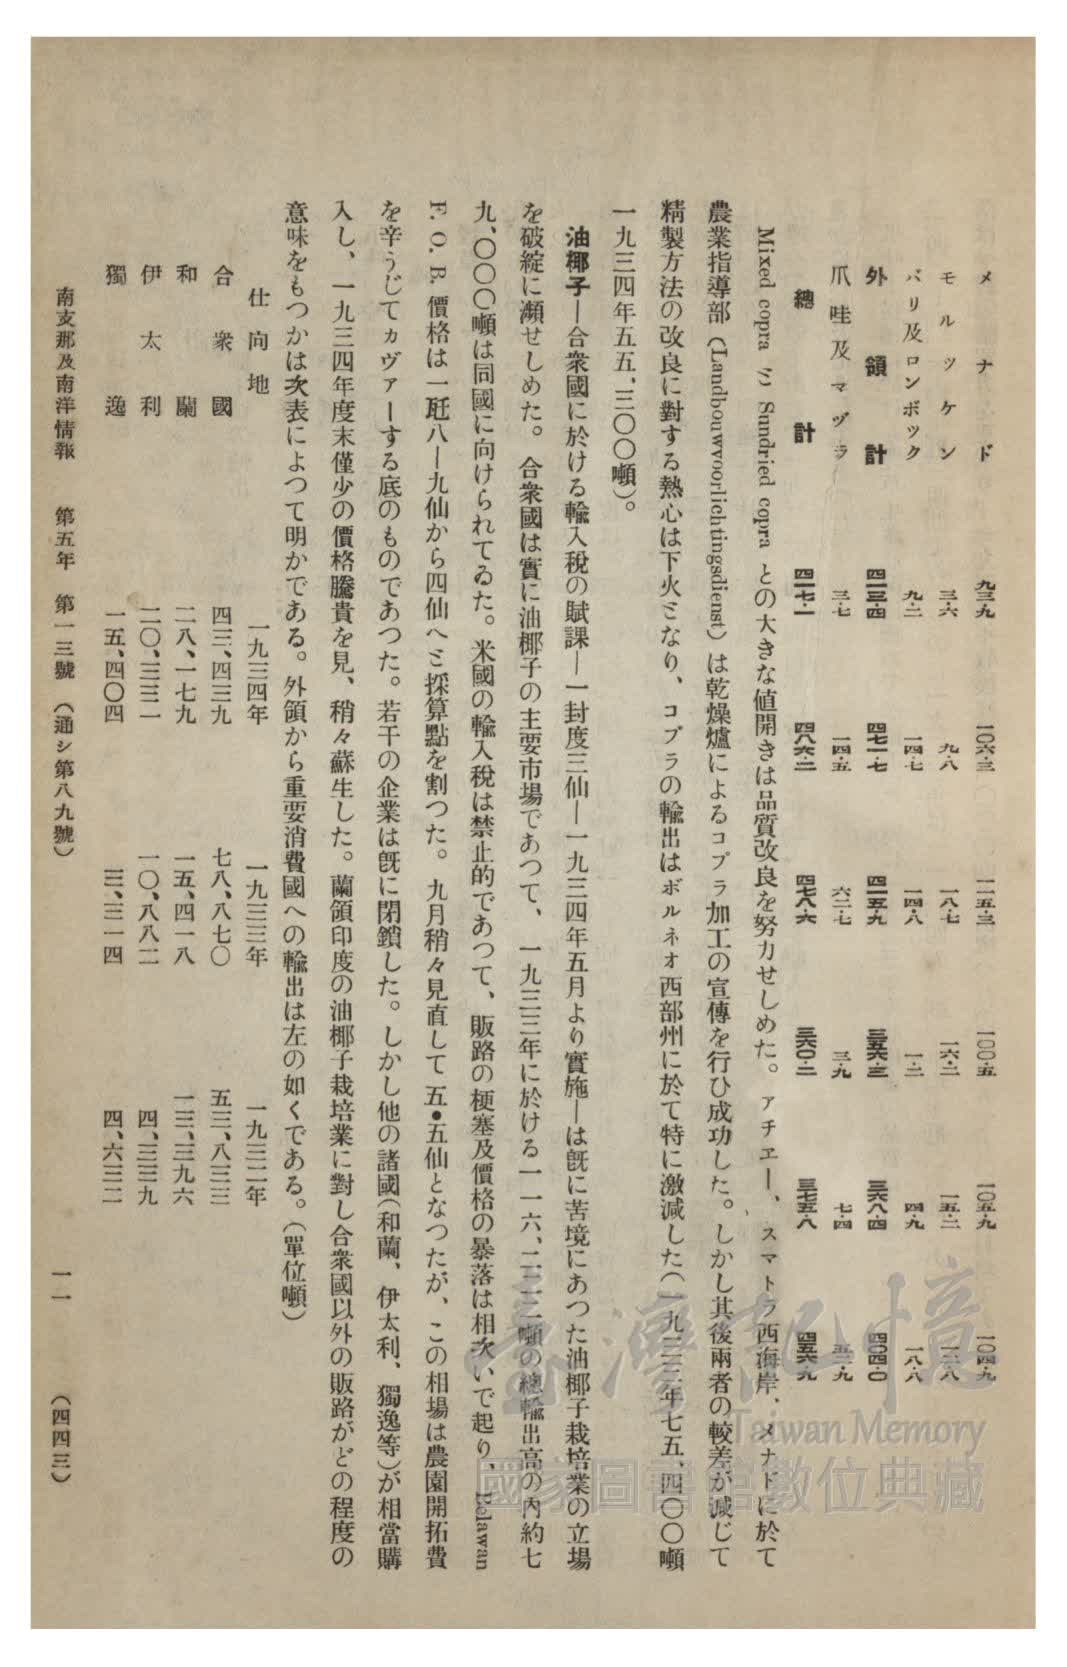 メナド 九三・九 一〇六・三 一一五・三 一〇〇・五 一〇五・九 一〇四・九
モルツケン 三・六 九・八 一八・七 一六・二 一五・二 一三・八
バリ及ロンボツク 九・二 一四・七 一四・八 一・二 四・九 一八・八
外領計 四一三・四 四七一・七 四一五・九 三五六・三 三六八・四 四〇四・〇
爪哇及マヅラ 三・七 一四・五 六二・七 三・九 七・四 五二・九
總計 四一七・一 四八六・二 四七八・六 三六〇・二 三七五・八 四五六・九
Mixed copra ミ Sundried copra との大きな値開きは品質改良を努力せしめた。アチエー、スマトラ西海岸、メナドに於て
農業指導部(Landbouwvoorlichtingsdienst)は乾燥爐によるコプラ加工の宣傳を行ひ成功した。しかし其後兩者の較差が減じて
精製方法の改良に對する熱心は下火ミなり、コプラの輸出はボルネオ西部州に於て特に激減した(一九三三年七五、四〇〇噸
一九三四年五五、三〇〇噸)。
油椰子―合衆國に於ける輸入稅の賦課―一封度三仙―一九三四年五月より實施―は旣に苦境にあつた油椰子栽培業の立場
を破綻に瀕せしめた。合衆國は實に油椰子の主要市場であつて、一九三三年に於ける一一六、二二三噸の總輸出高の內約七
九、〇〇〇噸は同國に向けられてゐた。米國の輸入稅は禁止的であつて、販路の梗塞及價格の暴落は相次いで起り、Belawan
F. O. B. 價格は一瓩八―九仙から四仙へミ採算點を割つた。九月稍々見直して五・五仙となつたが、この相場は農園開拓費
を辛うじてカヴァーする底のものであつた。若干の企業は旣に閉鎖した。しかし他の諸國(和蘭、伊太利、獨逸等)が相當購
入し、一九三四年度末僅少の價格騰貴を見、稍々蘇生した。蘭領印度の油椰子栽培業に對し合衆國以外の販路がどの程度の
意味をもつかは次表によつて明かである。外領から重要消費國への輸出は左の如くである。(單位噸)
仕向地 一九三四年 一九三三年 一九三二年
合衆國 四三、四三九 七八、八七〇 五三、八三三
和蘭 二八、一七九 一五、四一八 一三、三九六
伊太利 二〇、三三一 一〇、八八二 四、三三九
獨逸 一五、四〇四 三、三一四 四、六三二
南支那及南洋情報 第五年 第一三號 (通シ第八九號) 一一 (四四三)
臺灣記憶
Taiwan Memory
國家圖書館數位典藏